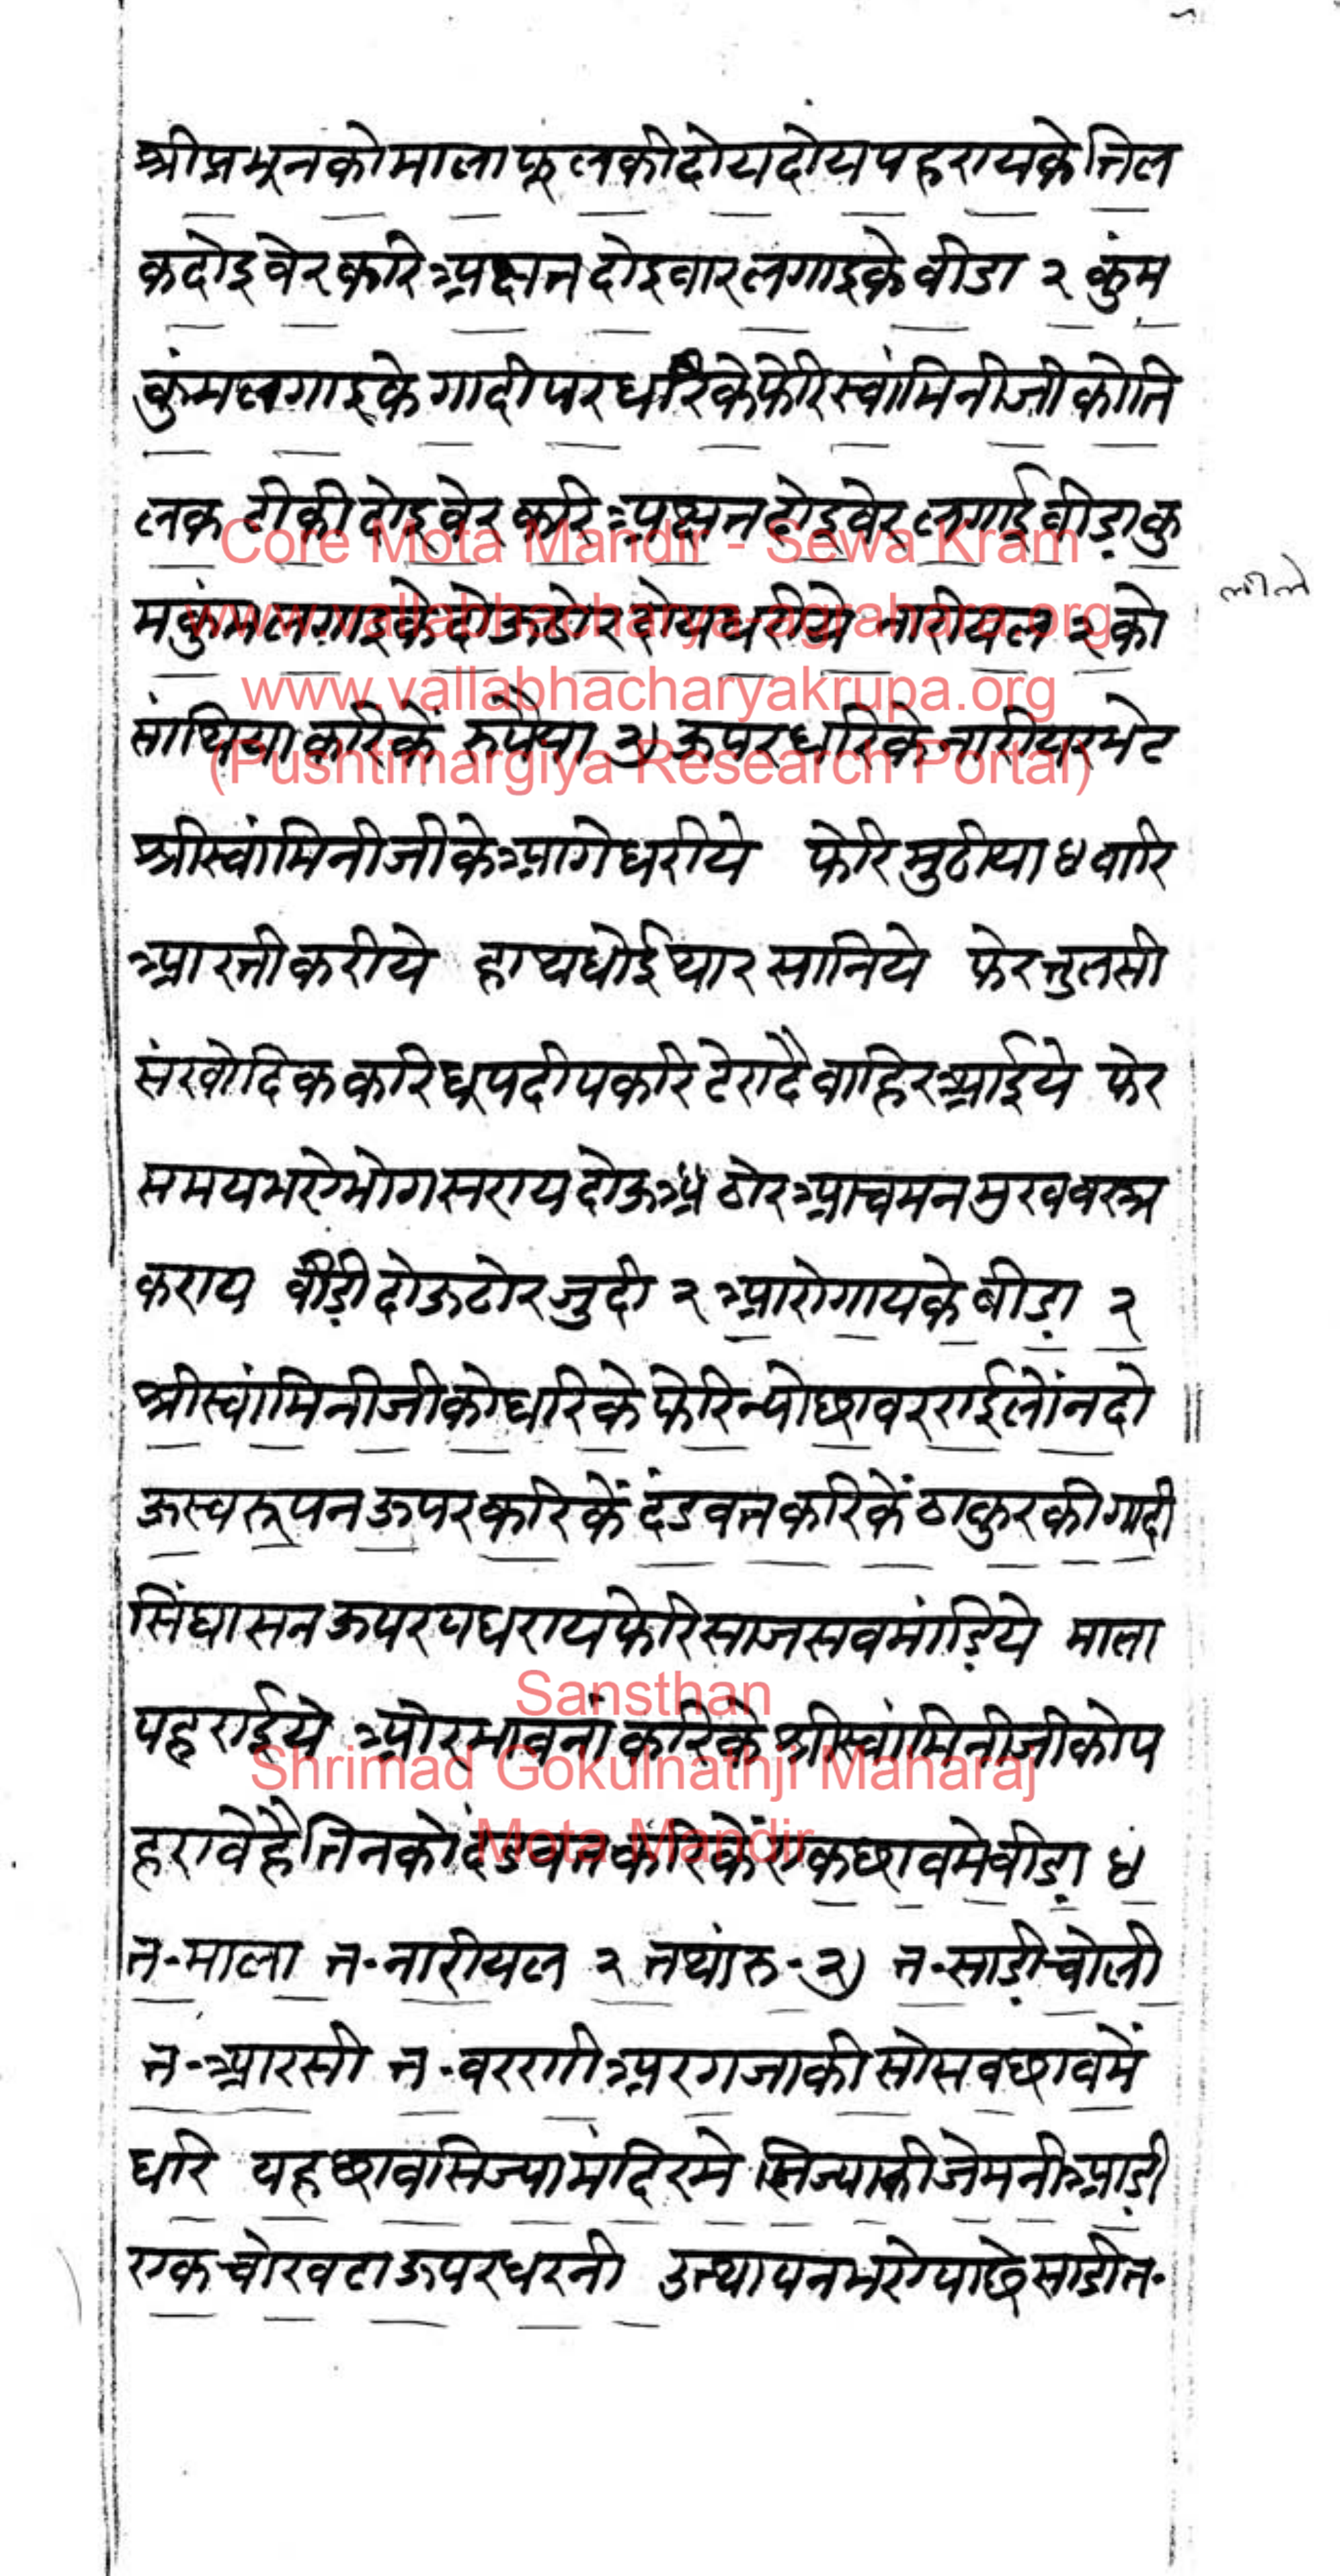 श्रीप्रभूनकोमालाफूलकीदोयदोयपहरायकेतिल
कदोइवेरकरिअक्षतदोइवारलगाइकेवीडा २ कुंम
कुंमलगाइकेगादीपरधरिकेफेरिस्वांमिनीजीकोति
लकटीकीदोइवेरकरिअक्षतदोइवेरलगाईवीड़ाकु
मकुंमलगाइकेदोऊठोरदोयधरीये नारीयल २ को
साथियाकरिकें रुपैया २) ऊपरधरिकेनारीयरभेट
श्रीस्वांमिनीजीकेआगेधरीये फेरिमुठीया ४ वारि
आरतीकरीये हाथधोईथारसानिये फेरतुलसी
संखोदिककरिधूपदीपकरिटेरादैवाहिरआईये फेर
समयभरेभोगसरायदोऊठोरआचमनमुखवस्त्र
कराय वीड़ीदोऊठोरजुदी २ आरोगायकेबीड़ा २
श्रीस्वांमिनीजीकोधरिकेफेरिन्योछावरराईलोंनदो
ऊस्वरूपनऊपरकरिकेंदंडवतकरिकेंठाकुरकीगादी
सिंघासनऊपरपधरायफेरिसाजसवमांड़िये माला
पहराईये औरभावनांकरिकेश्रीस्वांमिनीजीकोप
हरावेहैतिनकोदंडवतकरिकेंएकछावमेवीड़ा ४
त॰माला त॰नारीयल २ तथांरु॰२) त॰साड़ीचोली
त॰आरसी त॰वरणीअरगजाकीसोसवछावमें
धरि यहछावसिज्यामंदिरमेसिज्याकीजेमनीआड़ी
एकचोरवटाऊपरधरनी उत्थापनभरेपाछेसाडीत॰
Core Mota Mandir - Sewa Kram
www.vallabhacharya-agrahara.org
www.vallabhacharyakrupa.org
(Pushtimargiya Research Portal)
Sansthan
Shrimad Gokulnathji Maharaj
Mota Mandir